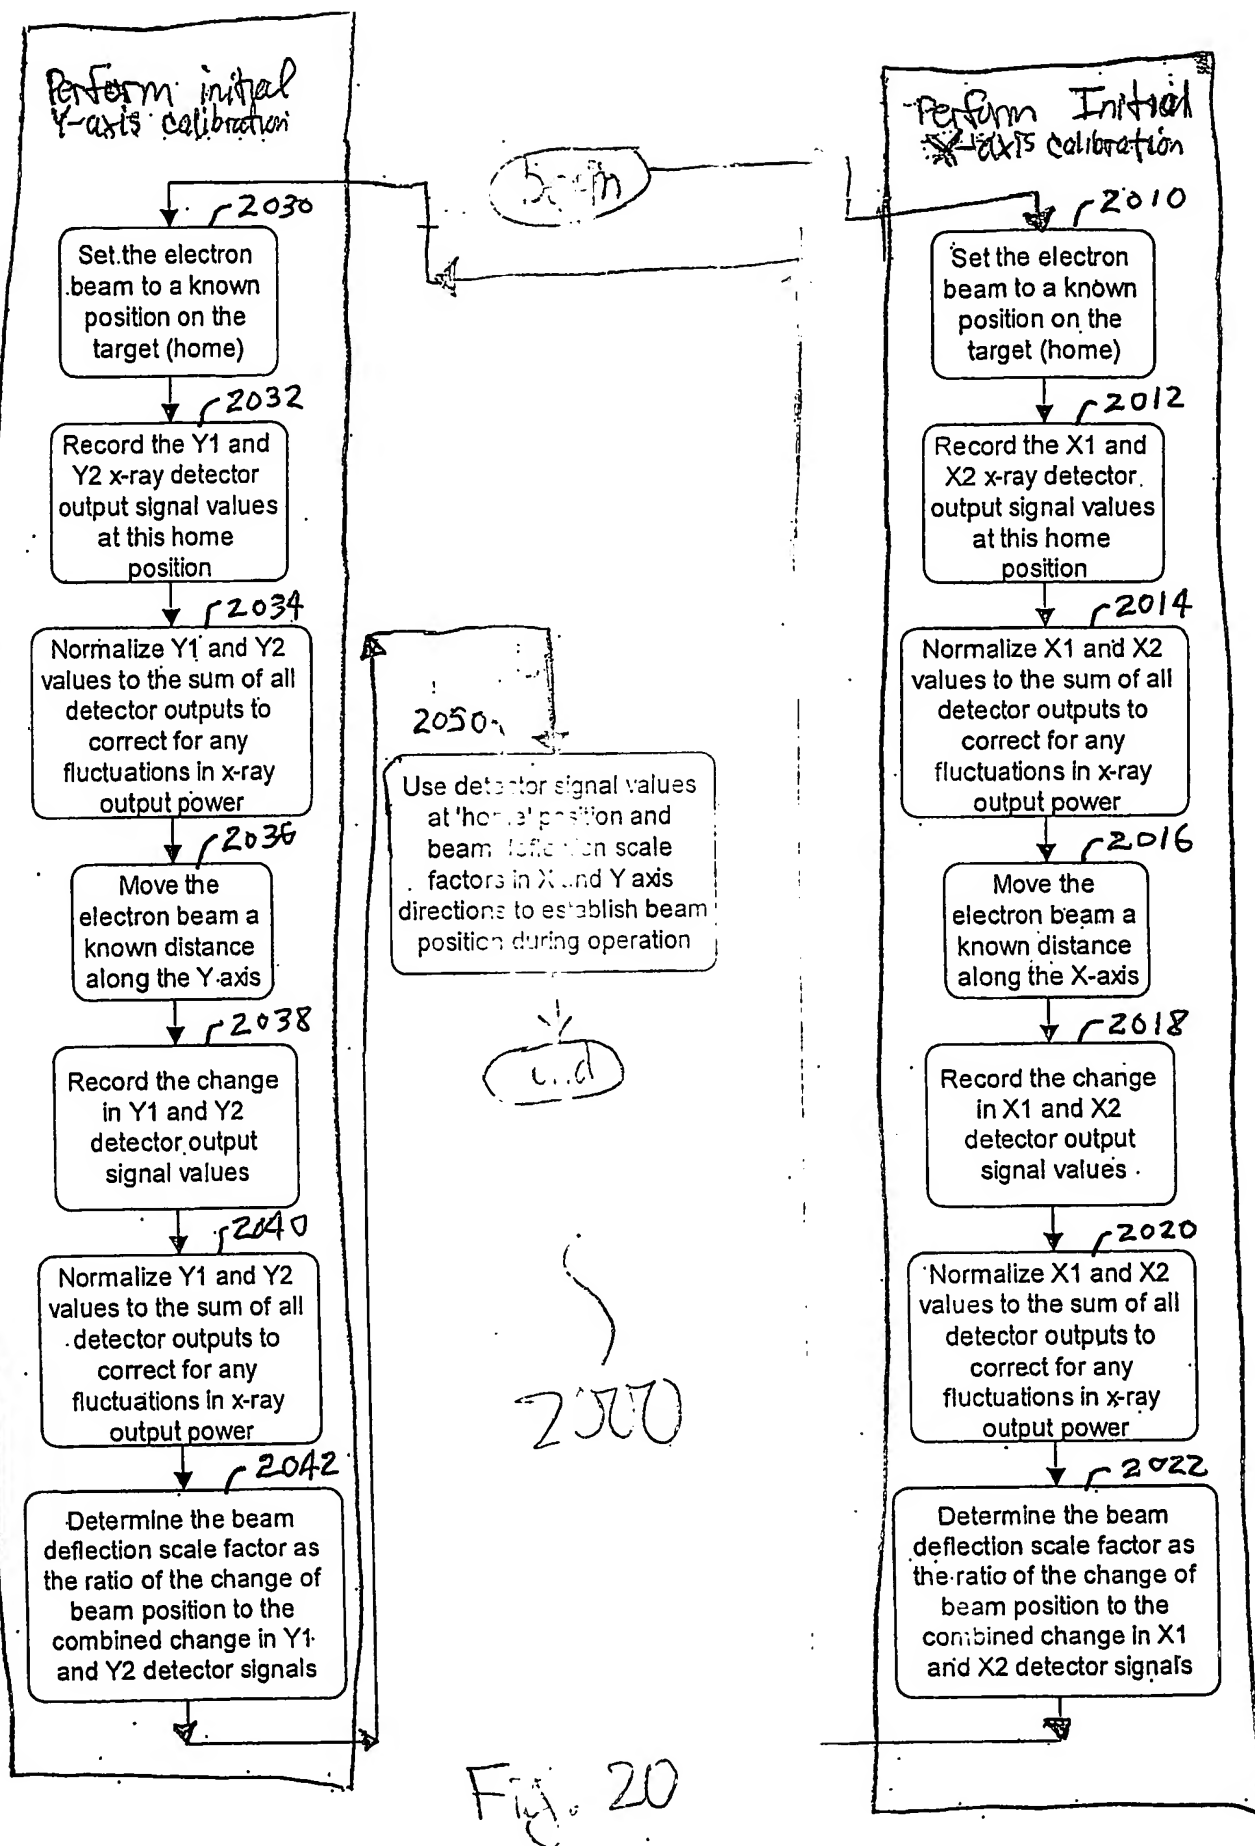 Perform initial
Y-axis calibration
2030
Set the electron
beam to a known
position on the
target (home)
2032
Record the Y1 and
Y2 x-ray detector
output signal values
at this home
position
2034
Normalize Y1 and Y2
values to the sum of all
detector outputs to
correct for any
fluctuations in x-ray
output power
2036
Move the
electron beam a
known distance
along the Y-axis
2038
Record the change
in Y1 and Y2
detector output
signal values
2040
Normalize Y1 and Y2
values to the sum of all
detector outputs to
correct for any
fluctuations in x-ray
output power
2042
Determine the beam
deflection scale factor as
the ratio of the change of
beam position to the
combined change in Y1
and Y2 detector signals
begin
2050
Use detector signal values
at 'home' position and
beam deflection scale
factors in X and Y axis
directions to establish beam
position during operation
end
2000
Perform Initial
X-axis calibration
2010
Set the electron
beam to a known
position on the
target (home)
2012
Record the X1 and
X2 x-ray detector
output signal values
at this home
position
2014
Normalize X1 and X2
values to the sum of all
detector outputs to
correct for any
fluctuations in x-ray
output power
2016
Move the
electron beam a
known distance
along the X-axis
2018
Record the change
in X1 and X2
detector output
signal values
2020
Normalize X1 and X2
values to the sum of all
detector outputs to
correct for any
fluctuations in x-ray
output power
2022
Determine the beam
deflection scale factor as
the ratio of the change of
beam position to the
combined change in X1
and X2 detector signals
Fig. 20